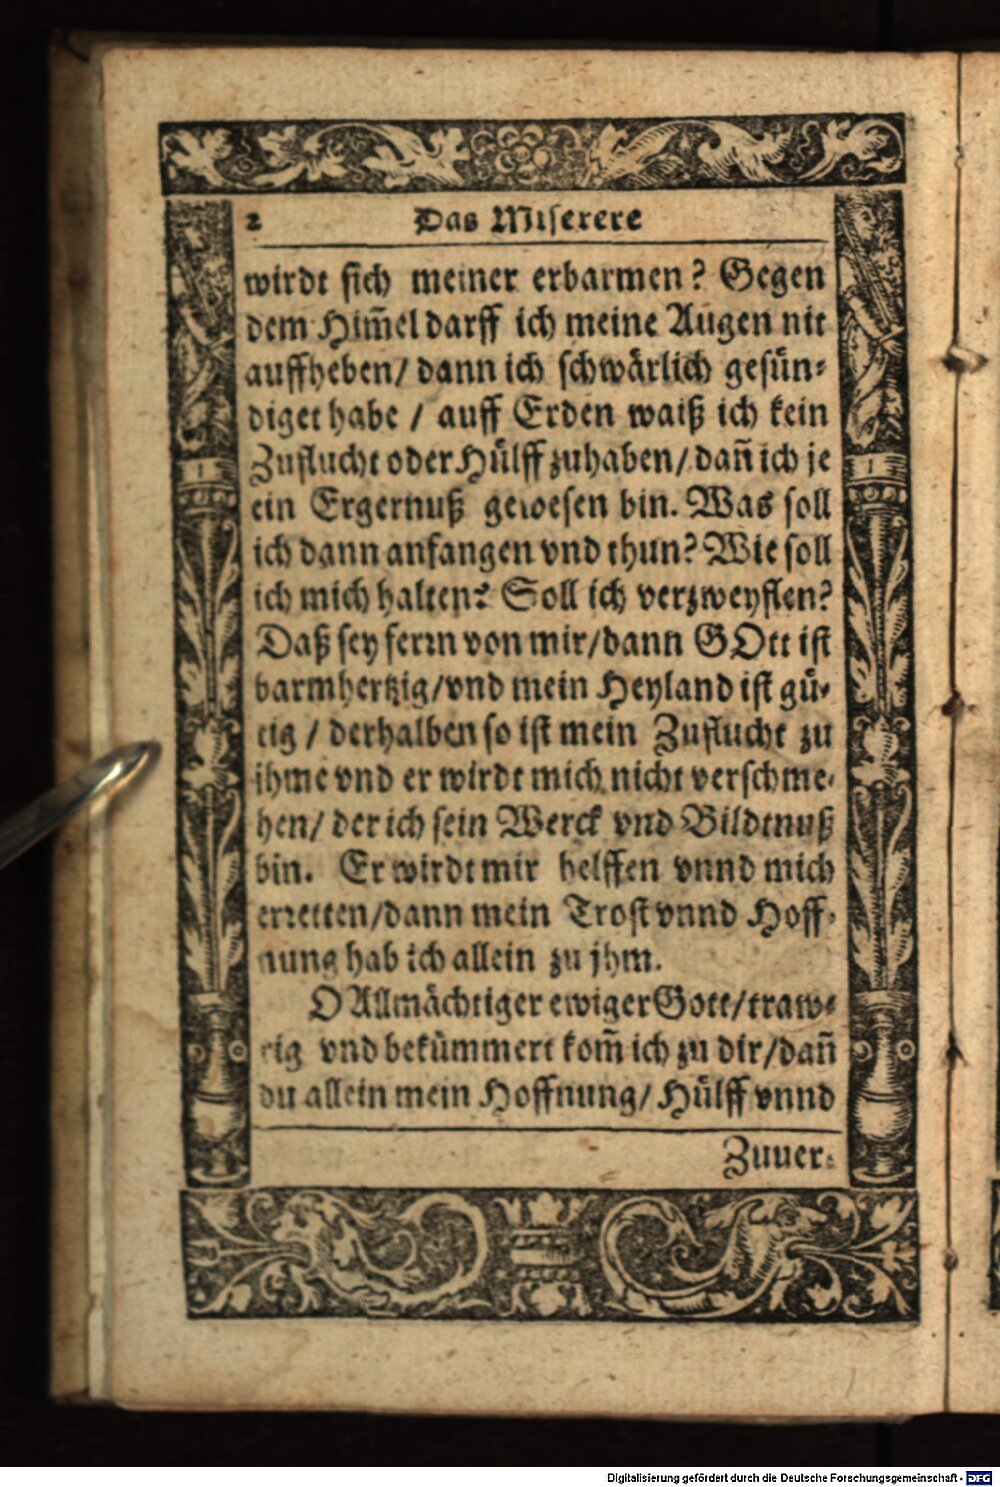 2 Das Miserere
wirdt sich meiner erbarmen? Gegen
dem Him̃el darff ich meine Augen nit
auffheben/ dann ich schwärlich gesün-
diget habe / auff Erden waiß ich kein
Zuflucht oder Hülff zuhaben/ dañ ich je
ein Ergernuß gewesen bin. Was soll
ich dann anfangen vnd thun? Wie soll
ich mich halten? Soll ich verzweyflen?
Daß sey ferrn von mir/dann GOtt ist
barmhertzig/vnd mein Heyland ist gü-
tig / derhalben so ist mein Zuflucht zu
ihme vnd er wirdt mich nicht verschme-
hen/ der ich sein Werck vnd Bildtnuß
bin. Er wirdt mir helffen vnnd mich
erretten/dann mein Trost vnnd Hoff-
nung hab ich allein zu jhm.
O Allmächtiger ewiger Gott/traw-
rig vnd bekümmert kom̃ ich zu dir/dañ
du allein mein Hoffnung/ Hülff vnnd
Zuuer-
Digitalisierung gefördert durch die Deutsche Forschungsgemeinschaft - DFG